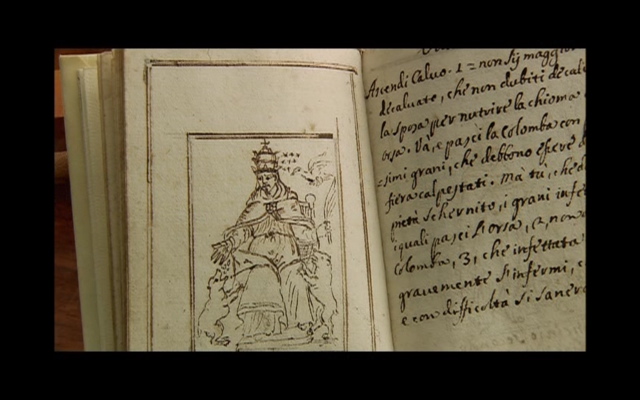 Ascendi Calvo. 1 = non sij maggior
decalvate, che non dubiti decal
la sposa per nutrire la chioma
orsa. Và, e pasci la Colomba con
simi grani, che debbono essere d
fiera calpestati. Mà tu, che d
pietà schernito, i grani infe
quali pasci l'orsa, 2, non
Colomba, 3, che infettata
gravemente s'infermi, e
e con difficoltà si sanerà